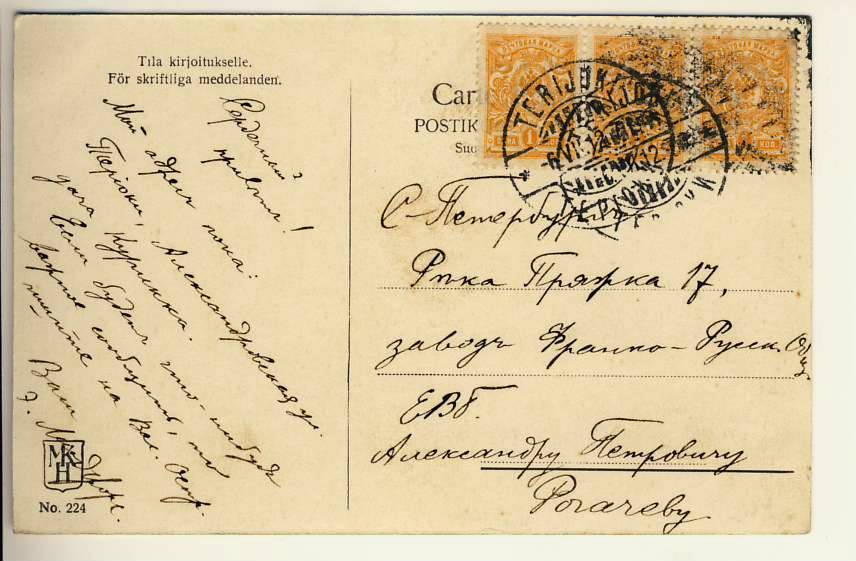 Tila kirjoitukselle.
För skriftliga meddelanden.
Сердечный
привет!
Мой адрес пока:
Терiоки, Александровская ул.
дача Куринка.
Если будет что-нибудь
важное сообщить, то
пишите на Вас. Остр.
Ваш
MK
H
No. 224
Cart
POSTIK
Suo
ПОЧТОВАЯ МАРКА
1
КОП.
TERIJOKI
С-Петербургъ
Рѣка Пряжка 17,
заводъ Франко-Русск. Общ.
ЕВБ.
Александру Петровичу
Рогачеву